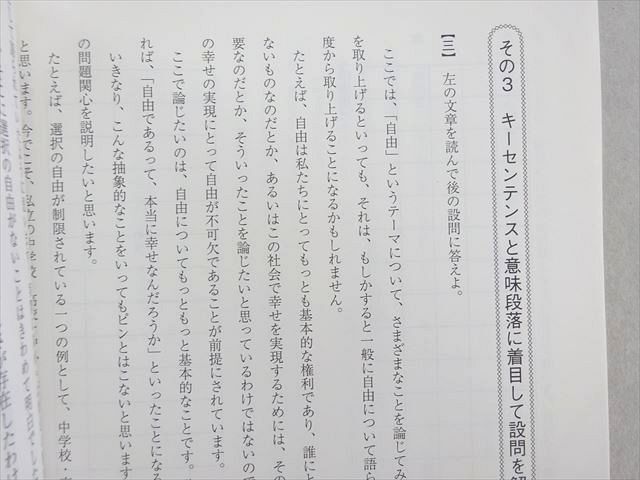 その3 キーセンテンスと意味段落に着目して設問を解
【三】 左の文章を読んで後の設問に答えよ。
ここでは、「自由」というテーマについて、さまざまなことを論じてみ
を取り上げるといっても、それは、もしかすると一般に自由について語ら
度から取り上げることになるかもしれません。
たとえば、自由は私たちにとってもっとも基本的な権利であり、誰にと
ないものなのだとか、あるいはこの社会で幸せを実現するためには、その
要なのだとか、そういったことを論じたいと思っているわけではないので
の幸せの実現にとって自由が不可欠であることが前提にされています。
ここで論じたいのは、自由についてもっともっと基本的なことです。
れば、「自由であるって、本当に幸せなんだろうか」といったことになる
いきなり、こんな抽象的なことをいってもピンとはこないと思います
の問題関心を説明したいと思います。
たとえば、選択の自由が制限されている一つの例として、中学校・
と思います。今でこそ、私立の中学校
選択の自由がないことはきわめて明白